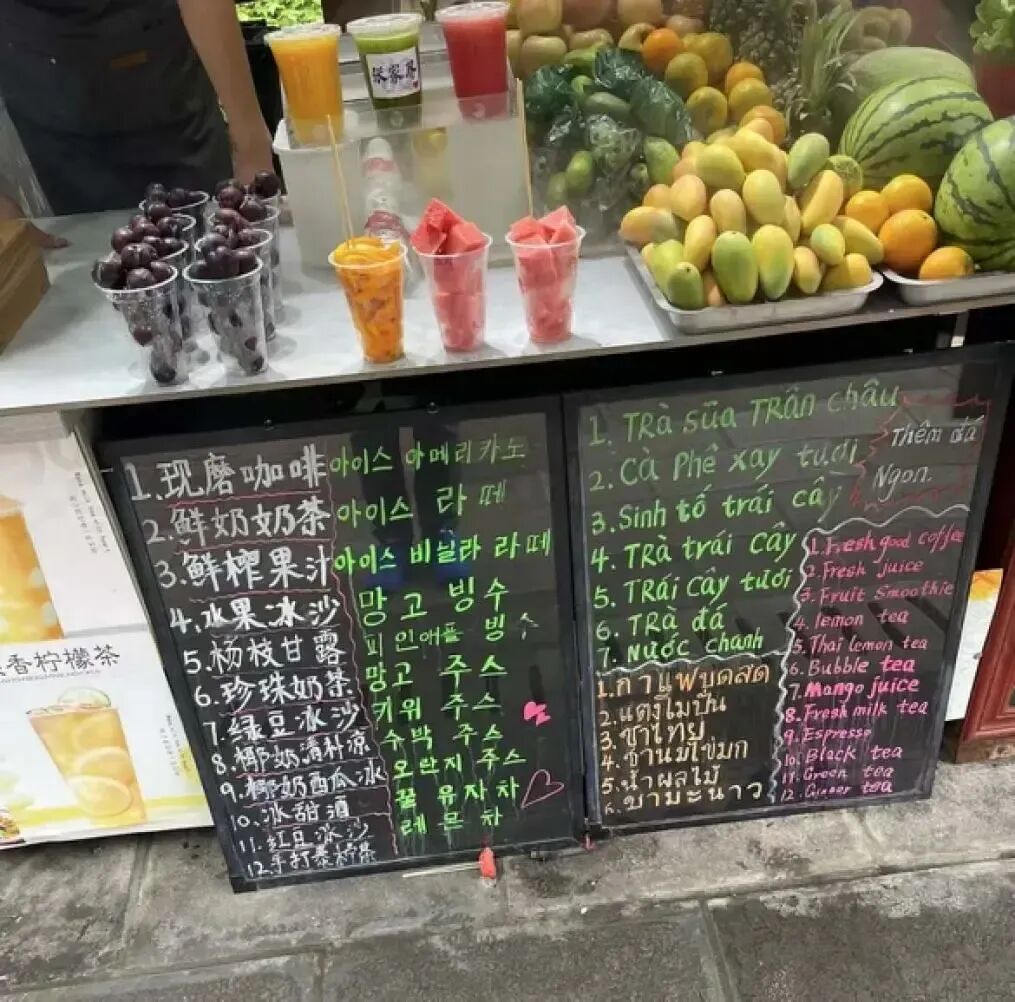 张家界
1.现磨咖啡
2.鲜奶奶茶
3.鲜榨果汁
4.水果冰沙
5.杨枝甘露
6.珍珠奶茶
7.绿豆冰沙
8.椰奶清补凉
9.椰奶西瓜冰
10.冰甜酒
11.红豆冰沙
12.手打柠檬茶
아이스 아메리카노
아이스 라떼
아이스 비닐라 라떼
망고 빙수
피인애플 빙수
망고 주스
키위 주스
수박 주스
오란지 주스
꿀 유자차
레몬차
1. TRà sữa TRân châu
2. Cà Phê xay tươi
3. Sinh tố trái cây
4. TRà trái cây
5. TRái cây tươi
6. TRà đá
7. Nước chanh
Thêm đá
Ngon.
1. กาแฟบูดสด
2. แตงโมปั่น
3. ชาไทย
4. ชานมไข่มุก
5. น้ำผลไม้
6. ชามะนาว
1. Fresh good coffee
2. Fresh juice
3. Fruit Smoothie
4. lemon tea
5. Thai lemon tea
6. Bubble tea
7. Mango juice
8. Fresh milk tea
9. Espresso
10. Black tea
11. Green tea
12. Ginger tea
香柠檬茶